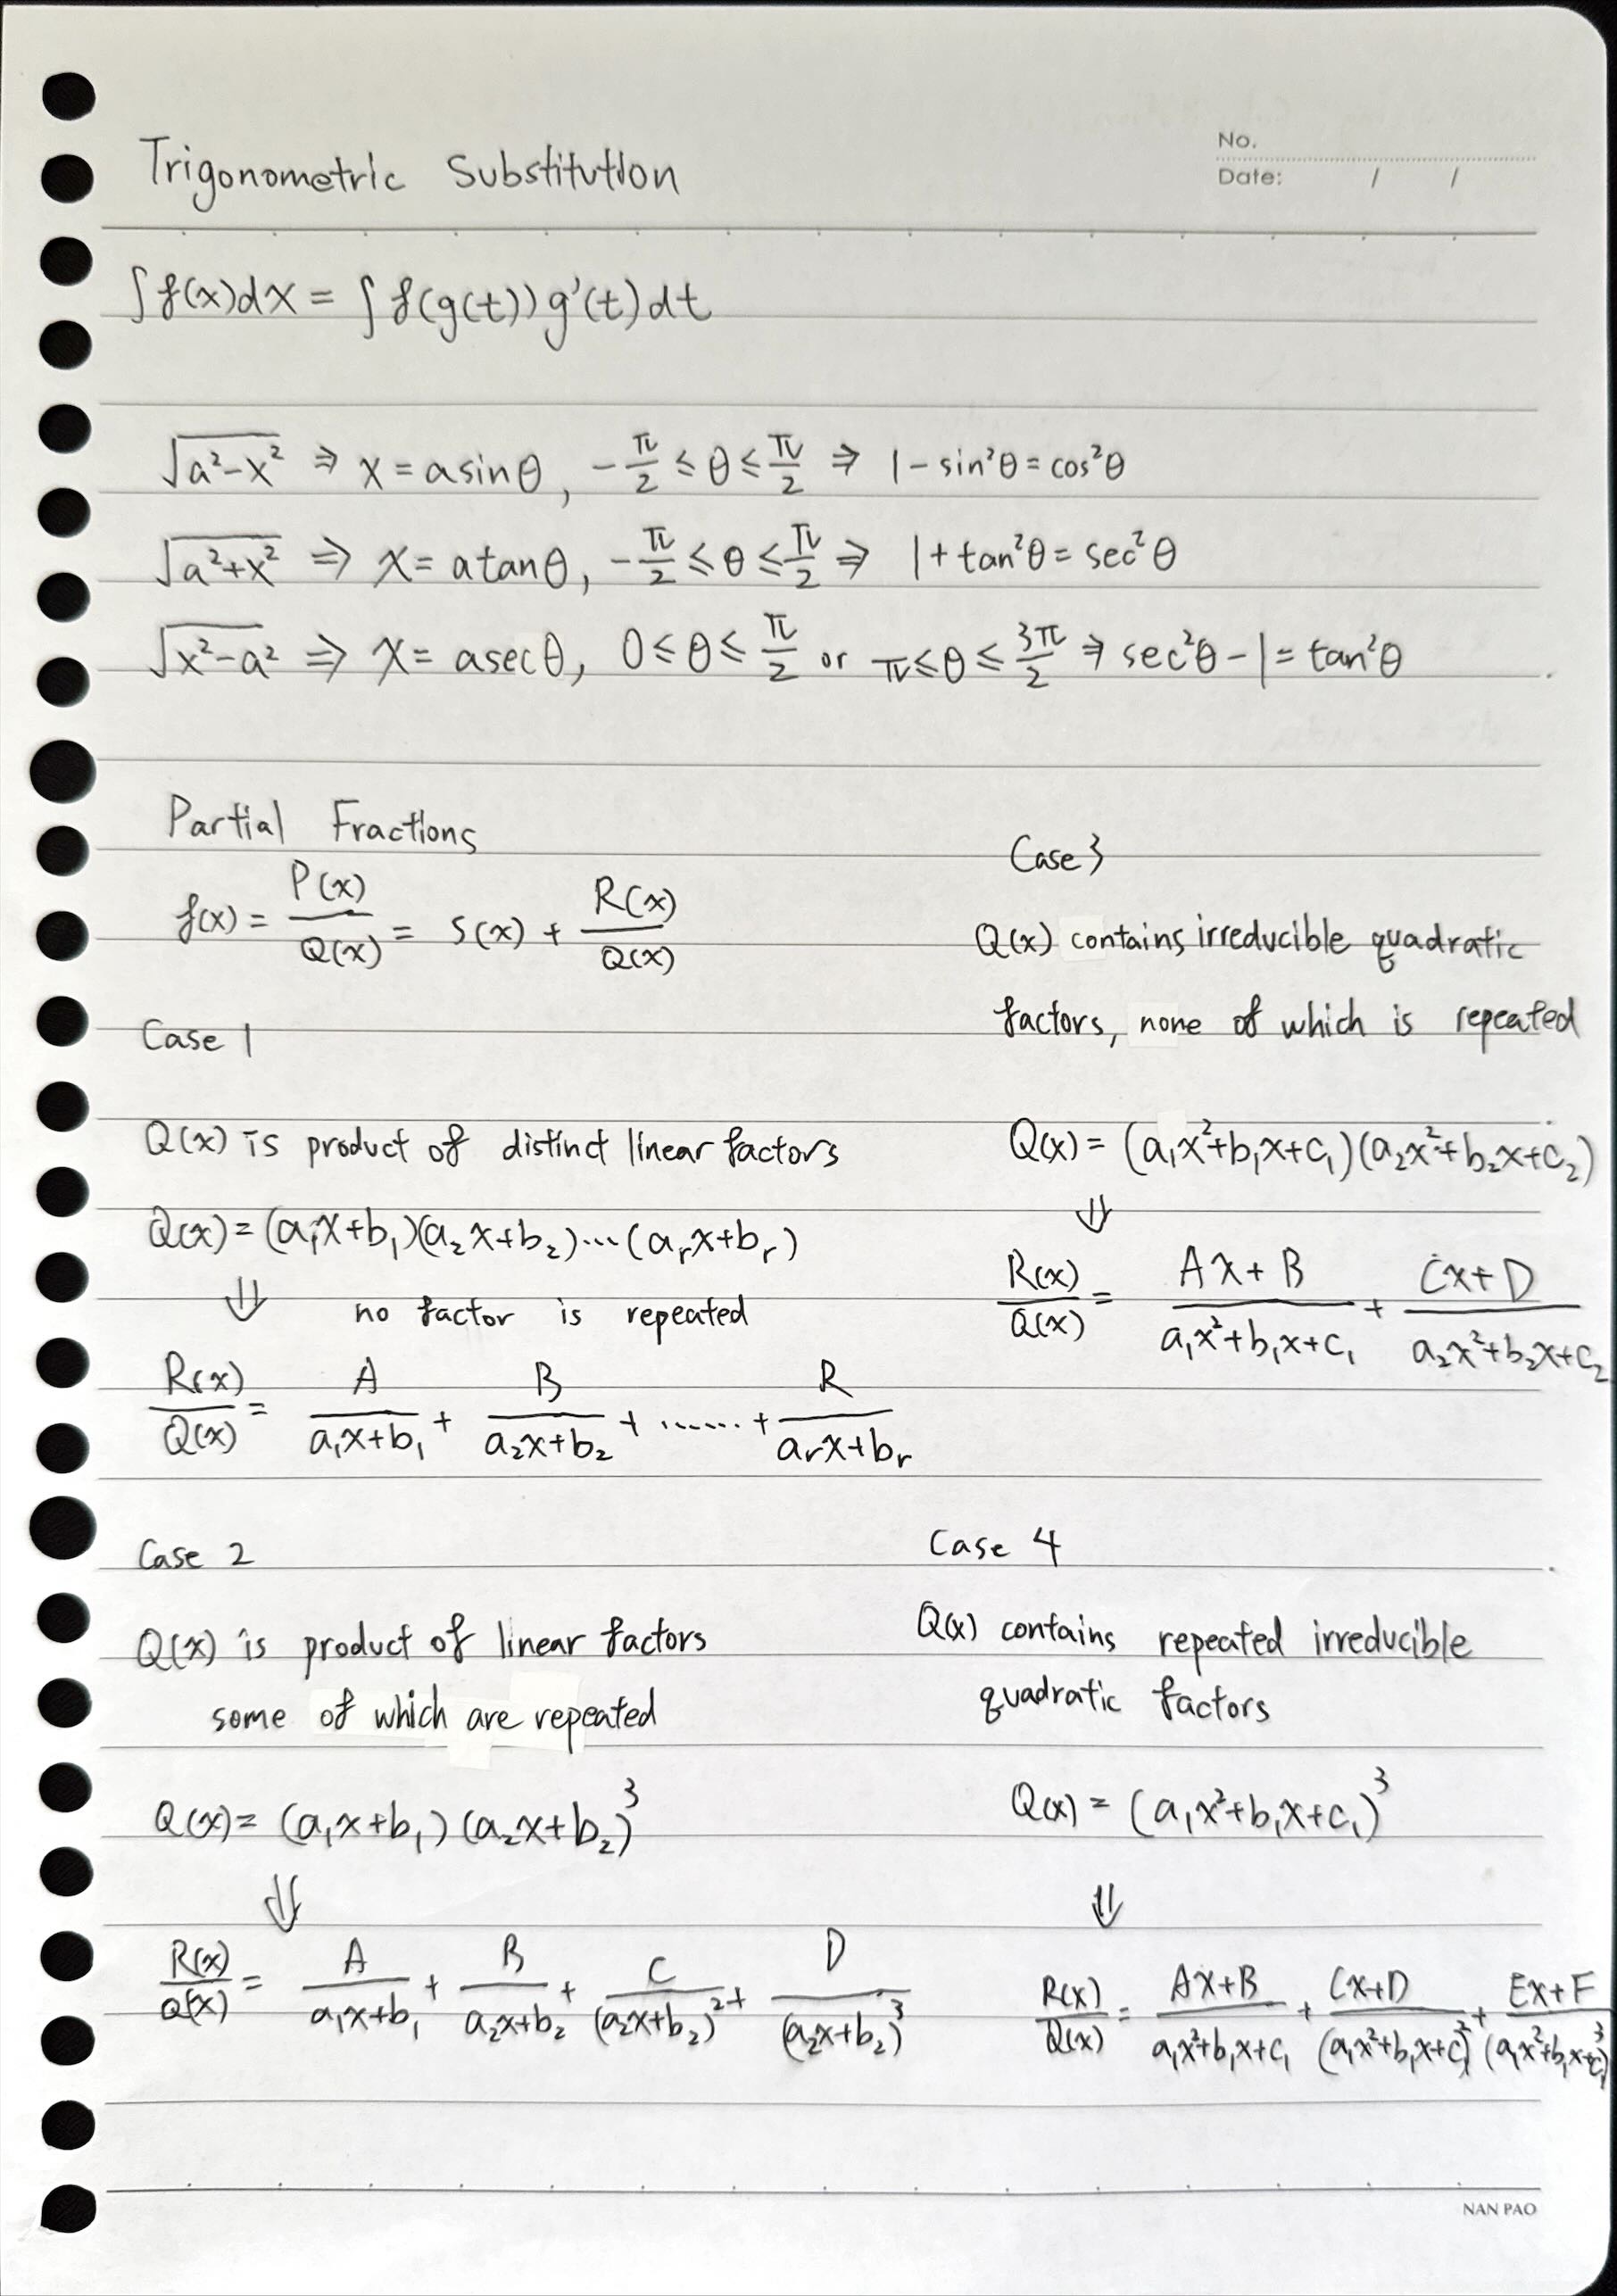 No.
Date: / /
Trigonometric Substitution
∫f(x)dx = ∫f(g(t))g'(t)dt
√(a²-x²) ⇒ x = a sinθ, -π/2 ≤ θ ≤ π/2 ⇒ 1 - sin²θ = cos²θ
√(a²+x²) ⇒ x = a tanθ, -π/2 ≤ θ ≤ π/2 ⇒ 1 + tan²θ = sec²θ
√(x²-a²) ⇒ x = a secθ, 0 ≤ θ ≤ π/2 or π ≤ θ ≤ 3π/2 ⇒ sec²θ - 1 = tan²θ
Partial Fractions
f(x) = P(x)/Q(x) = S(x) + R(x)/Q(x)
Case 1
Q(x) is product of distinct linear factors
Q(x) = (a₁x+b₁)(a₂x+b₂)...(aᵣx+bᵣ)
⇓ no factor is repeated
R(x)/Q(x) = A/(a₁x+b₁) + B/(a₂x+b₂) + ...... + R/(aᵣx+bᵣ)
Case 2
Q(x) is product of linear factors
some of which are repeated
Q(x) = (a₁x+b₁)(a₂x+b₂)³
⇓
R(x)/Q(x) = A/(a₁x+b₁) + B/(a₂x+b₂) + C/(a₂x+b₂)² + D/(a₂x+b₂)³
Case 3
Q(x) contains irreducible quadratic
factors, none of which is repeated
Q(x) = (a₁x²+b₁x+c₁)(a₂x²+b₂x+c₂)
⇓
R(x)/Q(x) = (Ax+B)/(a₁x²+b₁x+c₁) + (Cx+D)/(a₂x²+b₂x+c₂)
Case 4
Q(x) contains repeated irreducible
quadratic factors
Q(x) = (a₁x²+b₁x+c₁)³
⇓
R(x)/Q(x) = (Ax+B)/(a₁x²+b₁x+c₁) + (Cx+D)/(a₁x²+b₁x+c₁)² + (Ex+F)/(a₁x²+b₁x+c₁)³
NAN PAO